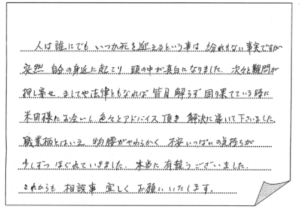 人は誰にでもいつか死を迎えるという事は 紛れもない事実ですが
突然 自分の身近に起こり 頭の中が真白になりました。次々と疑問が
押し寄せ ましてや法律ともなれば 皆目解らず 困り果てている時に
本田様と出会い、色々とアドバイス頂き 解決に導いて下さいました。
職業柄とはいえ 物腰がやわらかく 不安いっぱいの気持ちが
少しずつ ほぐれていきました。本当に有難うございました。
これからも 相談事 宜しく お願いいたします。